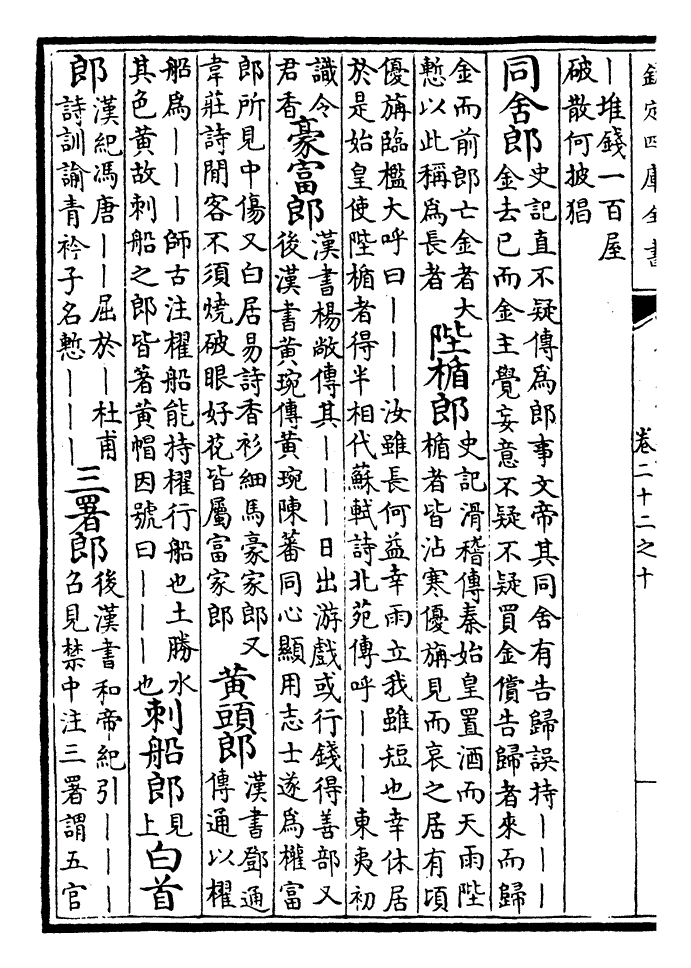 欽定四庫全書
卷二十二之十
丨堆錢一百屋
破散何披猖
同舍郎
史記直不疑傳為郎事文帝其同舍有告歸誤持丨丨丨
金去已而金主覺妄意不疑不疑買金償告歸者來而歸
金而前郎亡金者大
慙以此稱為長者
陛楯郎
史記滑稽傳秦始皇置酒而天雨陛
楯者皆沾寒優旃見而哀之居有頃
優旃臨檻大呼曰丨丨丨汝雖長何益幸雨立我雖短也幸休居
於是始皇使陛楯者得半相代蘇軾詩北苑傳呼丨丨丨東夷初
識令
君香
豪富郎
漢書楊敞傳其丨丨丨日出游戲或行錢得善部又
後漢書黃琬傳黃琬陳蕃同心顯用志士遂為權富
郎所見中傷又白居易詩香衫細馬豪家郎又
韋莊詩閒客不須燒破眼好花皆屬富家郎
黃頭郎
漢書鄧通
傳通以櫂
船為丨丨丨師古注櫂船能持櫂行船也土勝水
其色黃故刺船之郎皆著黃帽因號曰丨丨丨也
刺船郎
見
上
白首
郎
漢紀馮唐丨丨屈於丨杜甫
詩訓諭青衿子名慙丨丨丨
三署郎
後漢書和帝紀引丨丨丨
召見禁中注三署謂五官